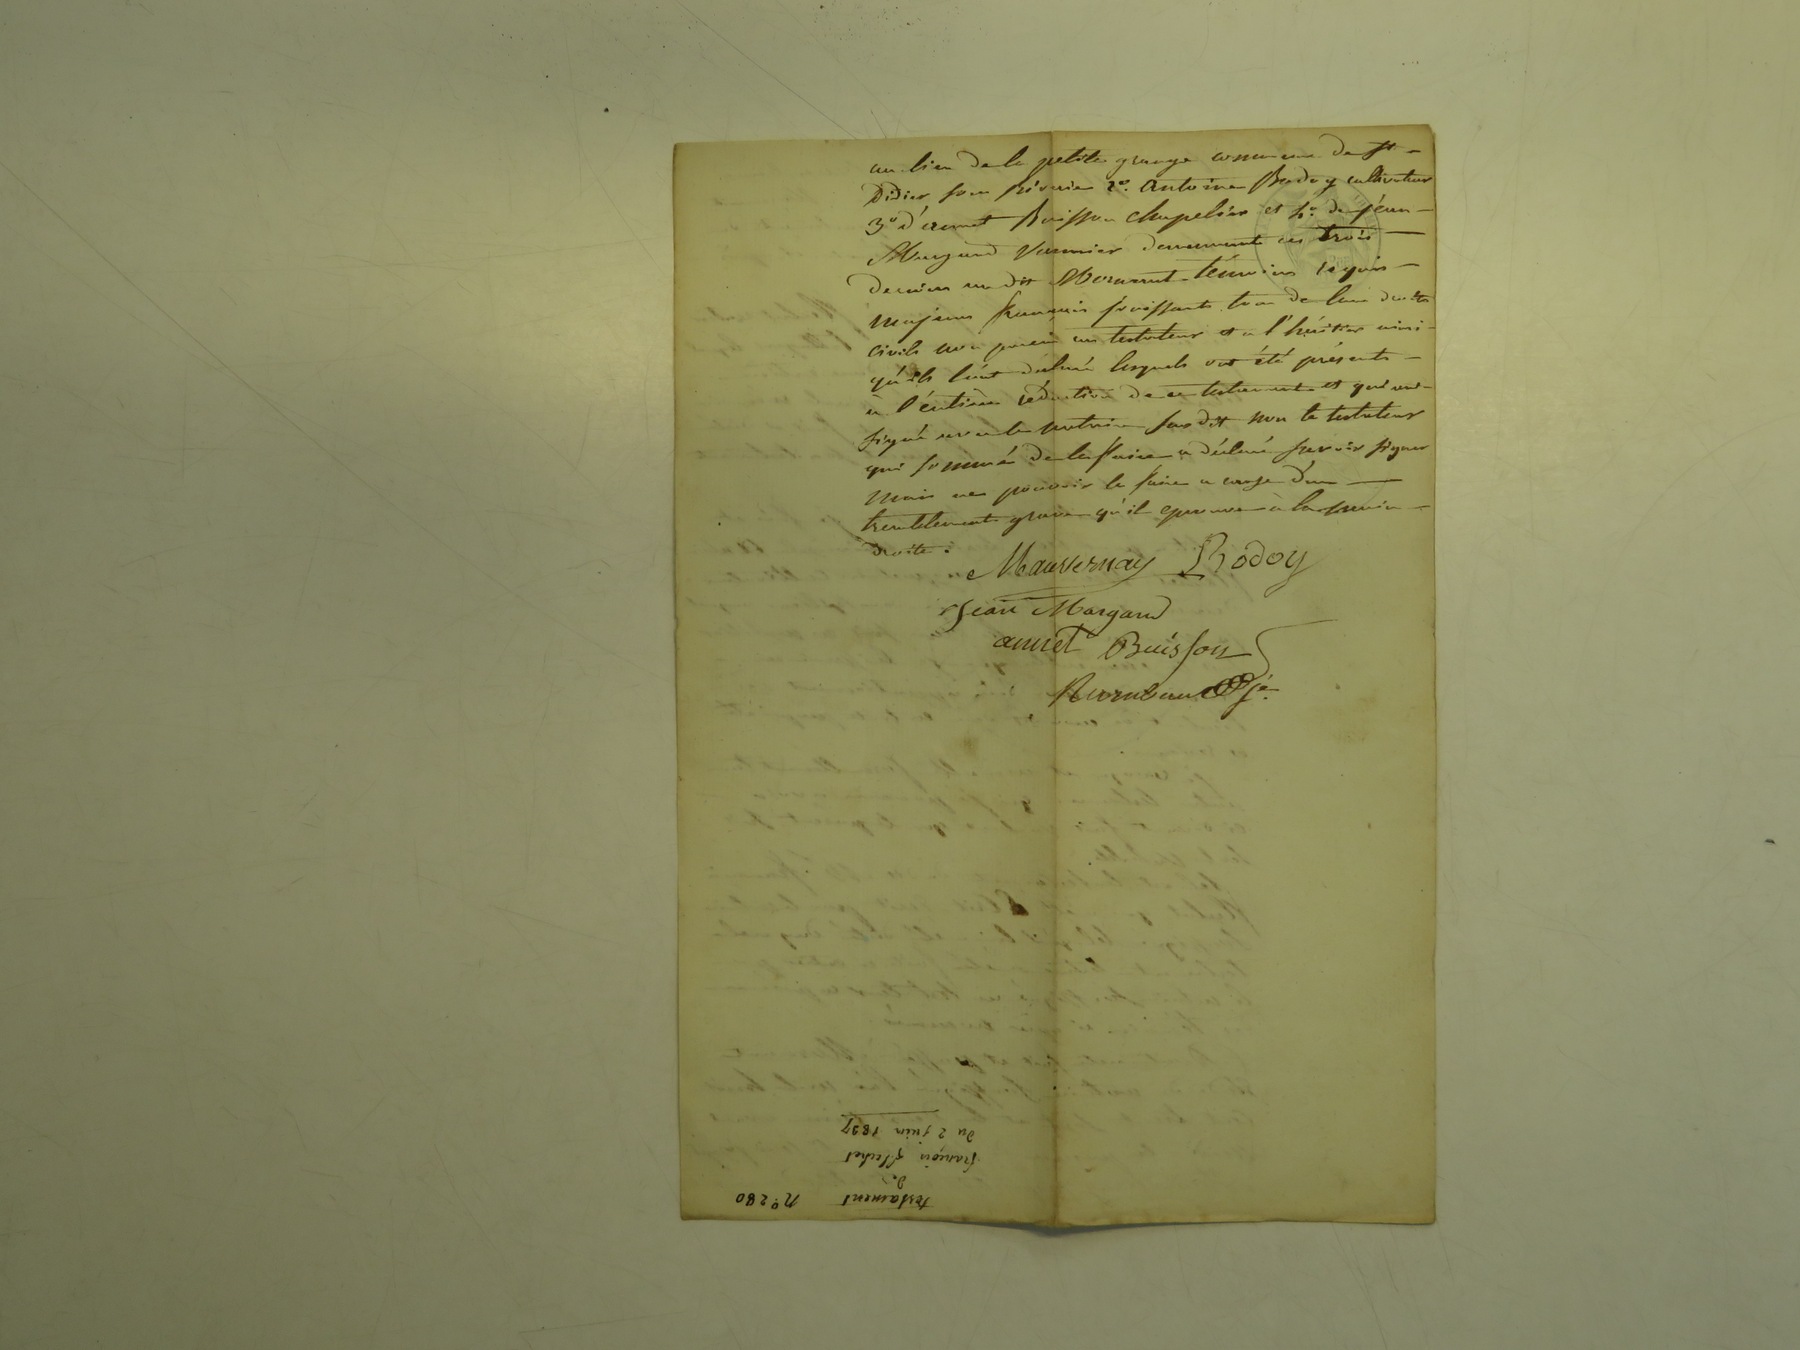 au lieu de la petite grange commune de St
Didier sous Riverie 2º. Antoine Rodoy cultivateur
3º d'annet Buisson chapelier et 4º. de Jean
Margand vannier demeurant ces trois
derniers au dit Mornant témoins requis
majeurs français jouissants tous de leurs droits
civils non parens au testateur et à l'héritier ainsi
qu'ils l'ont déclaré lesquels ont été présents
à l'entière rédaction de ce testament et qui ont
signé avec le notaire susdit non le testateur
qui sommé de le faire a déclaré savoir signer
mais ne pouvoir le faire a cause d'un
tremblement grave qu'il eprouve à la main
droite.
Mauvernay Rodoy
Jean Margand
annet Buisson
testament Nº 280
de
françois flechet
du 2 juin 1837